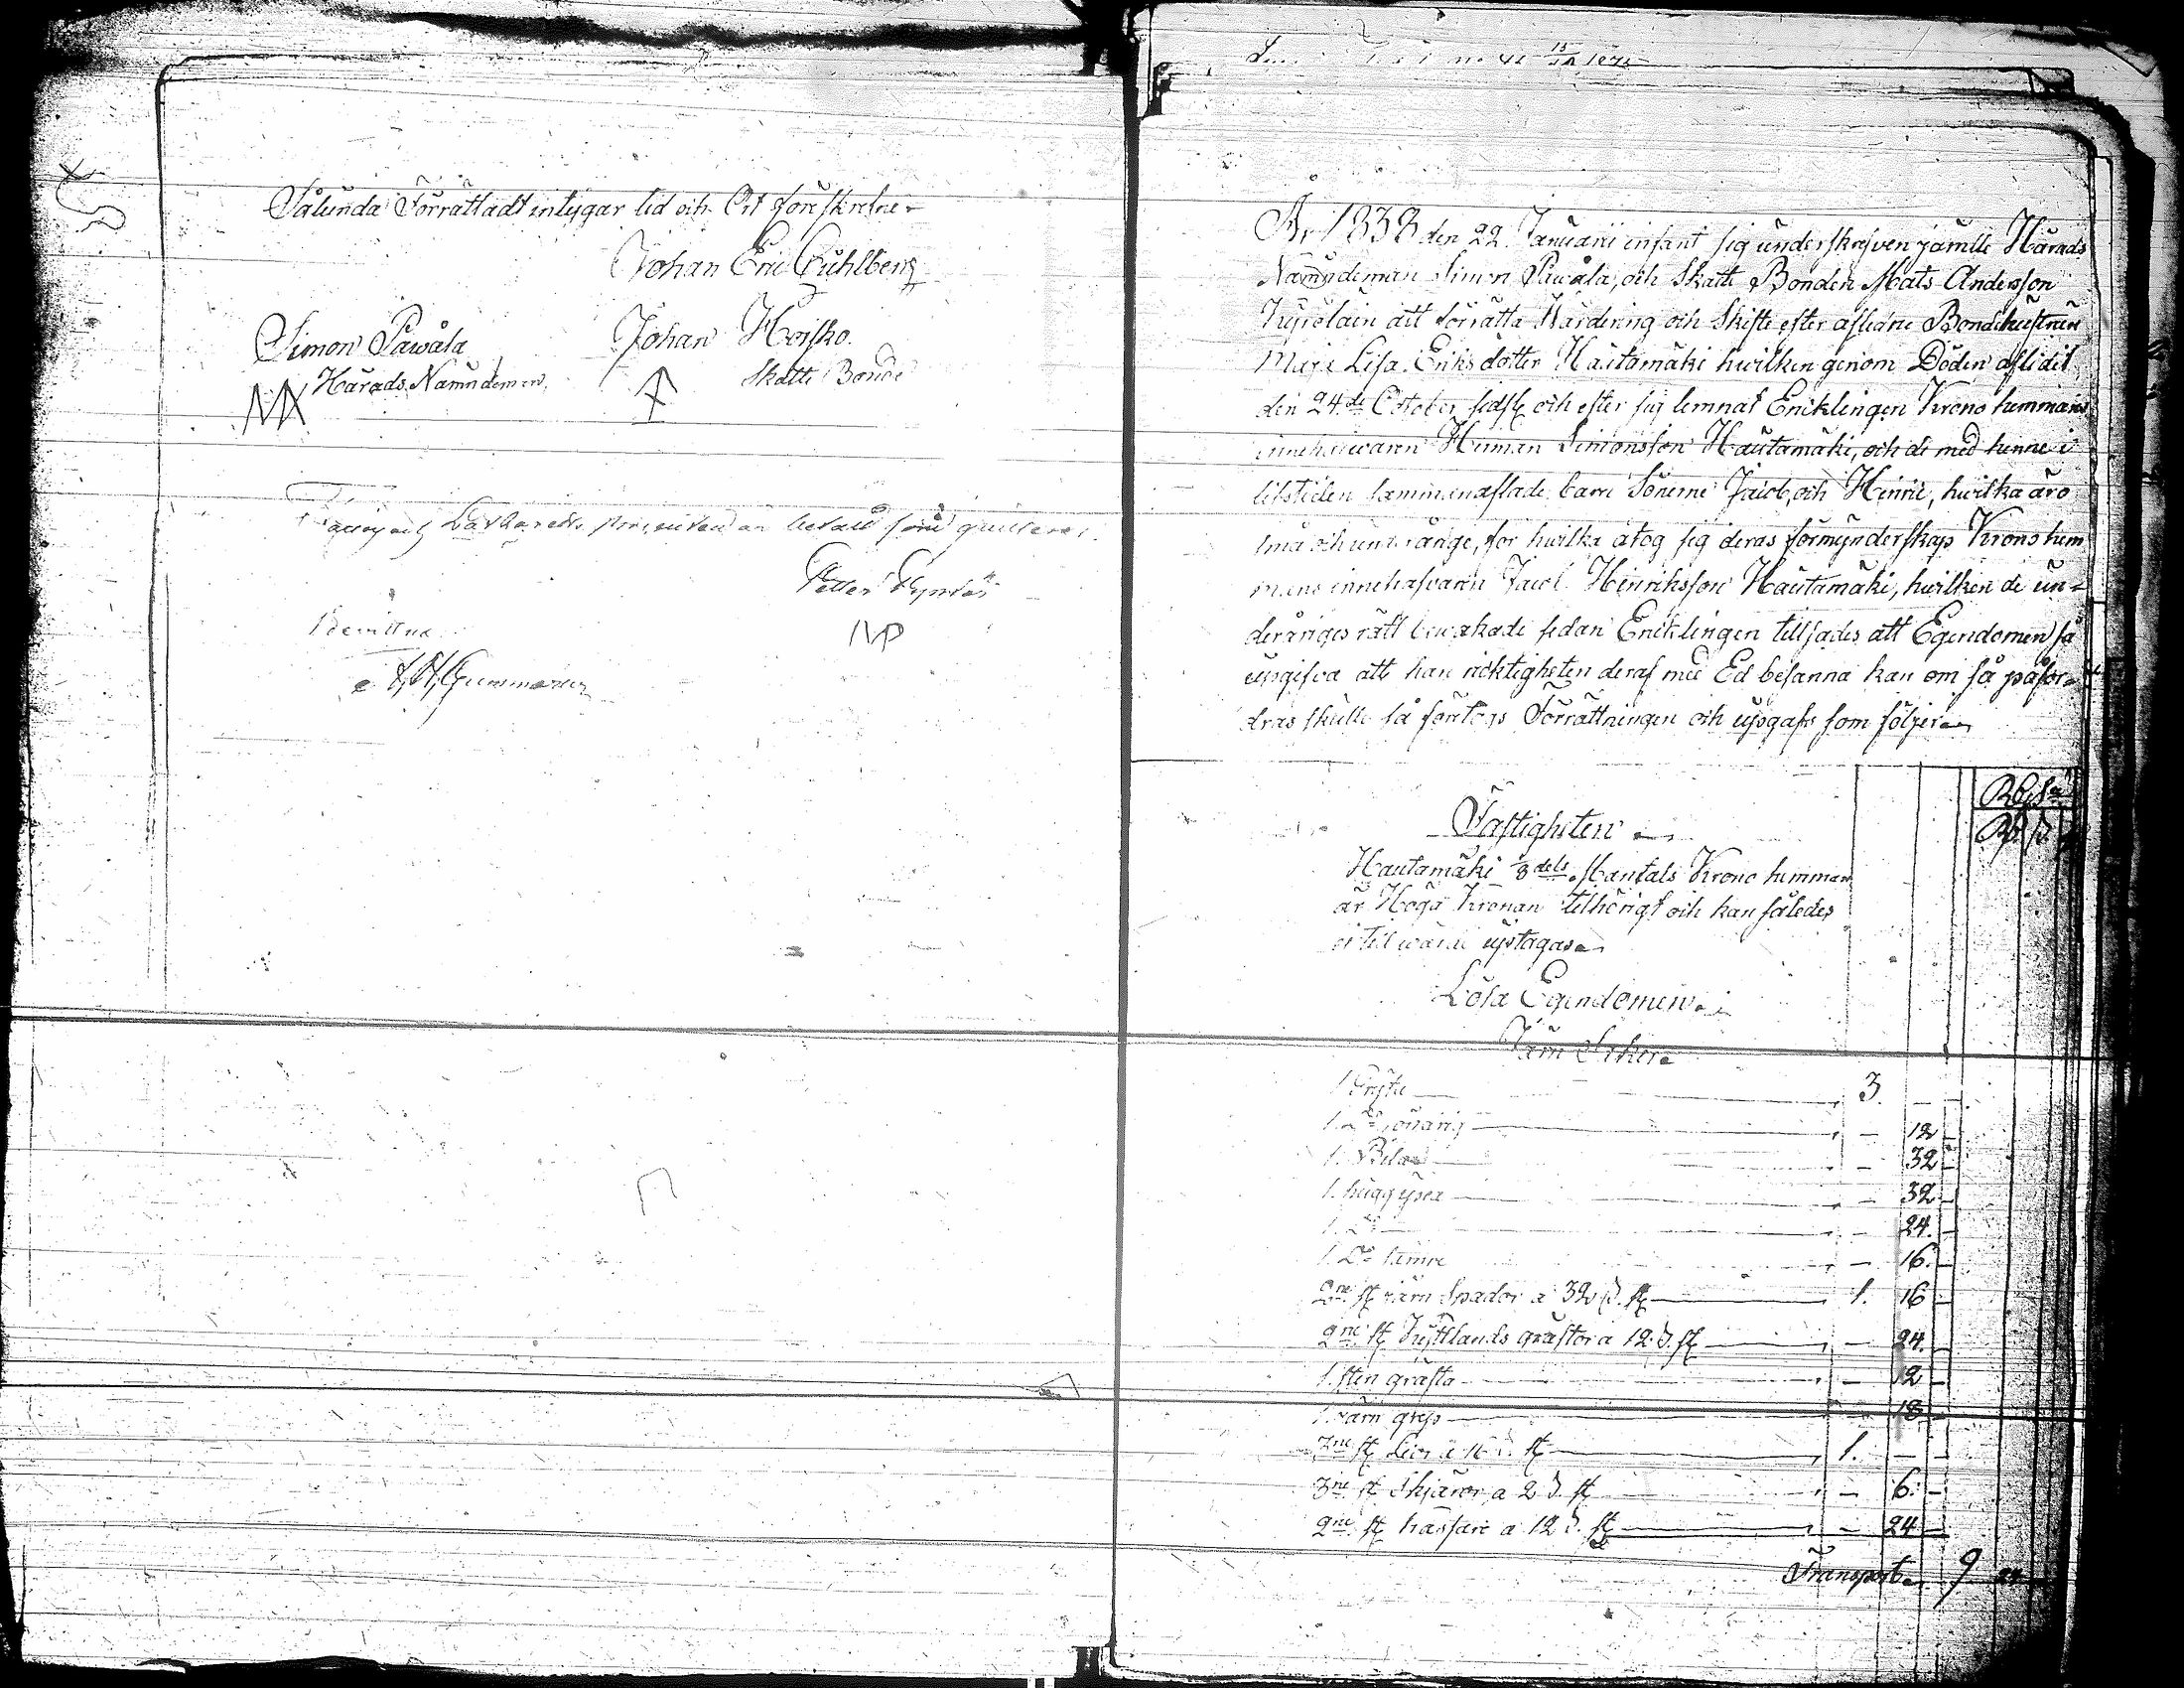 Sålunda Förrättadt intygar tid och Ort föreskrefne
Johan Eric Cuhlberg
Simon Påwåla Johan Hoisko
Härads Nämndeman Skatte Bonde
Lazaretts är betald som quitteras
Petter
Bevittna
År 1838 den 22 Januarii infant sig underskrefven jämte Härads
Nämndeman Simon Påwåla, och Skatte Bonden Mats Andersson
att förrätta Wärdering och Skifte efter aflidne Bondehustrun
Maja Lisa Eriks dotter Hautamäki hwilken genom Döden aflidit
den 24de October sidstl och efter sig lemnat Enklingen Krono hemmans
innehafwaren Herman Simonsson Hautamäki, och de med henne i
lifstiden sammanaflade barn Sönerne Jacob, och Hinric, hwilka äro
små och underånge, för hwilka åtog sig deras förmynderskap Krono hem
mans innehafvaren Jacob Henriksson Hautamäki, hwilken de un-
deråriges rätt bewakade sedan Enklingen tillsades att Egendomen så
upgifva att han ricktigheten deraf med Ed besanna kan om så påfor-
dras skulle så företogs Förrättningen och upgafs som följer
Fastigheten
Hautamäki 8dels Mantals Krono hemman
är Höga Kronan tillhörigt och kan således
ei til wärde uptagas
Lösa Egendomen
Järn Saker
1 Gryta 3. —
1. Do — 12 —
1. Bila — 32 —
1. huggyxa — 32 —
1. Do — 24. —
1. Do sämre — 16. —
2ne st järn Spador a 32 s. st 1. 16 —
2ne st gräftor a 12 s. st — 24. —
1. sten gräfta — 12 —
1. järn grep — 18. —
st Liar a 16 s. st 1. — —
3ne st Skjäror a 2 s. st — 6. —
2ne st a 12 s. st — 24 —
Transport 9